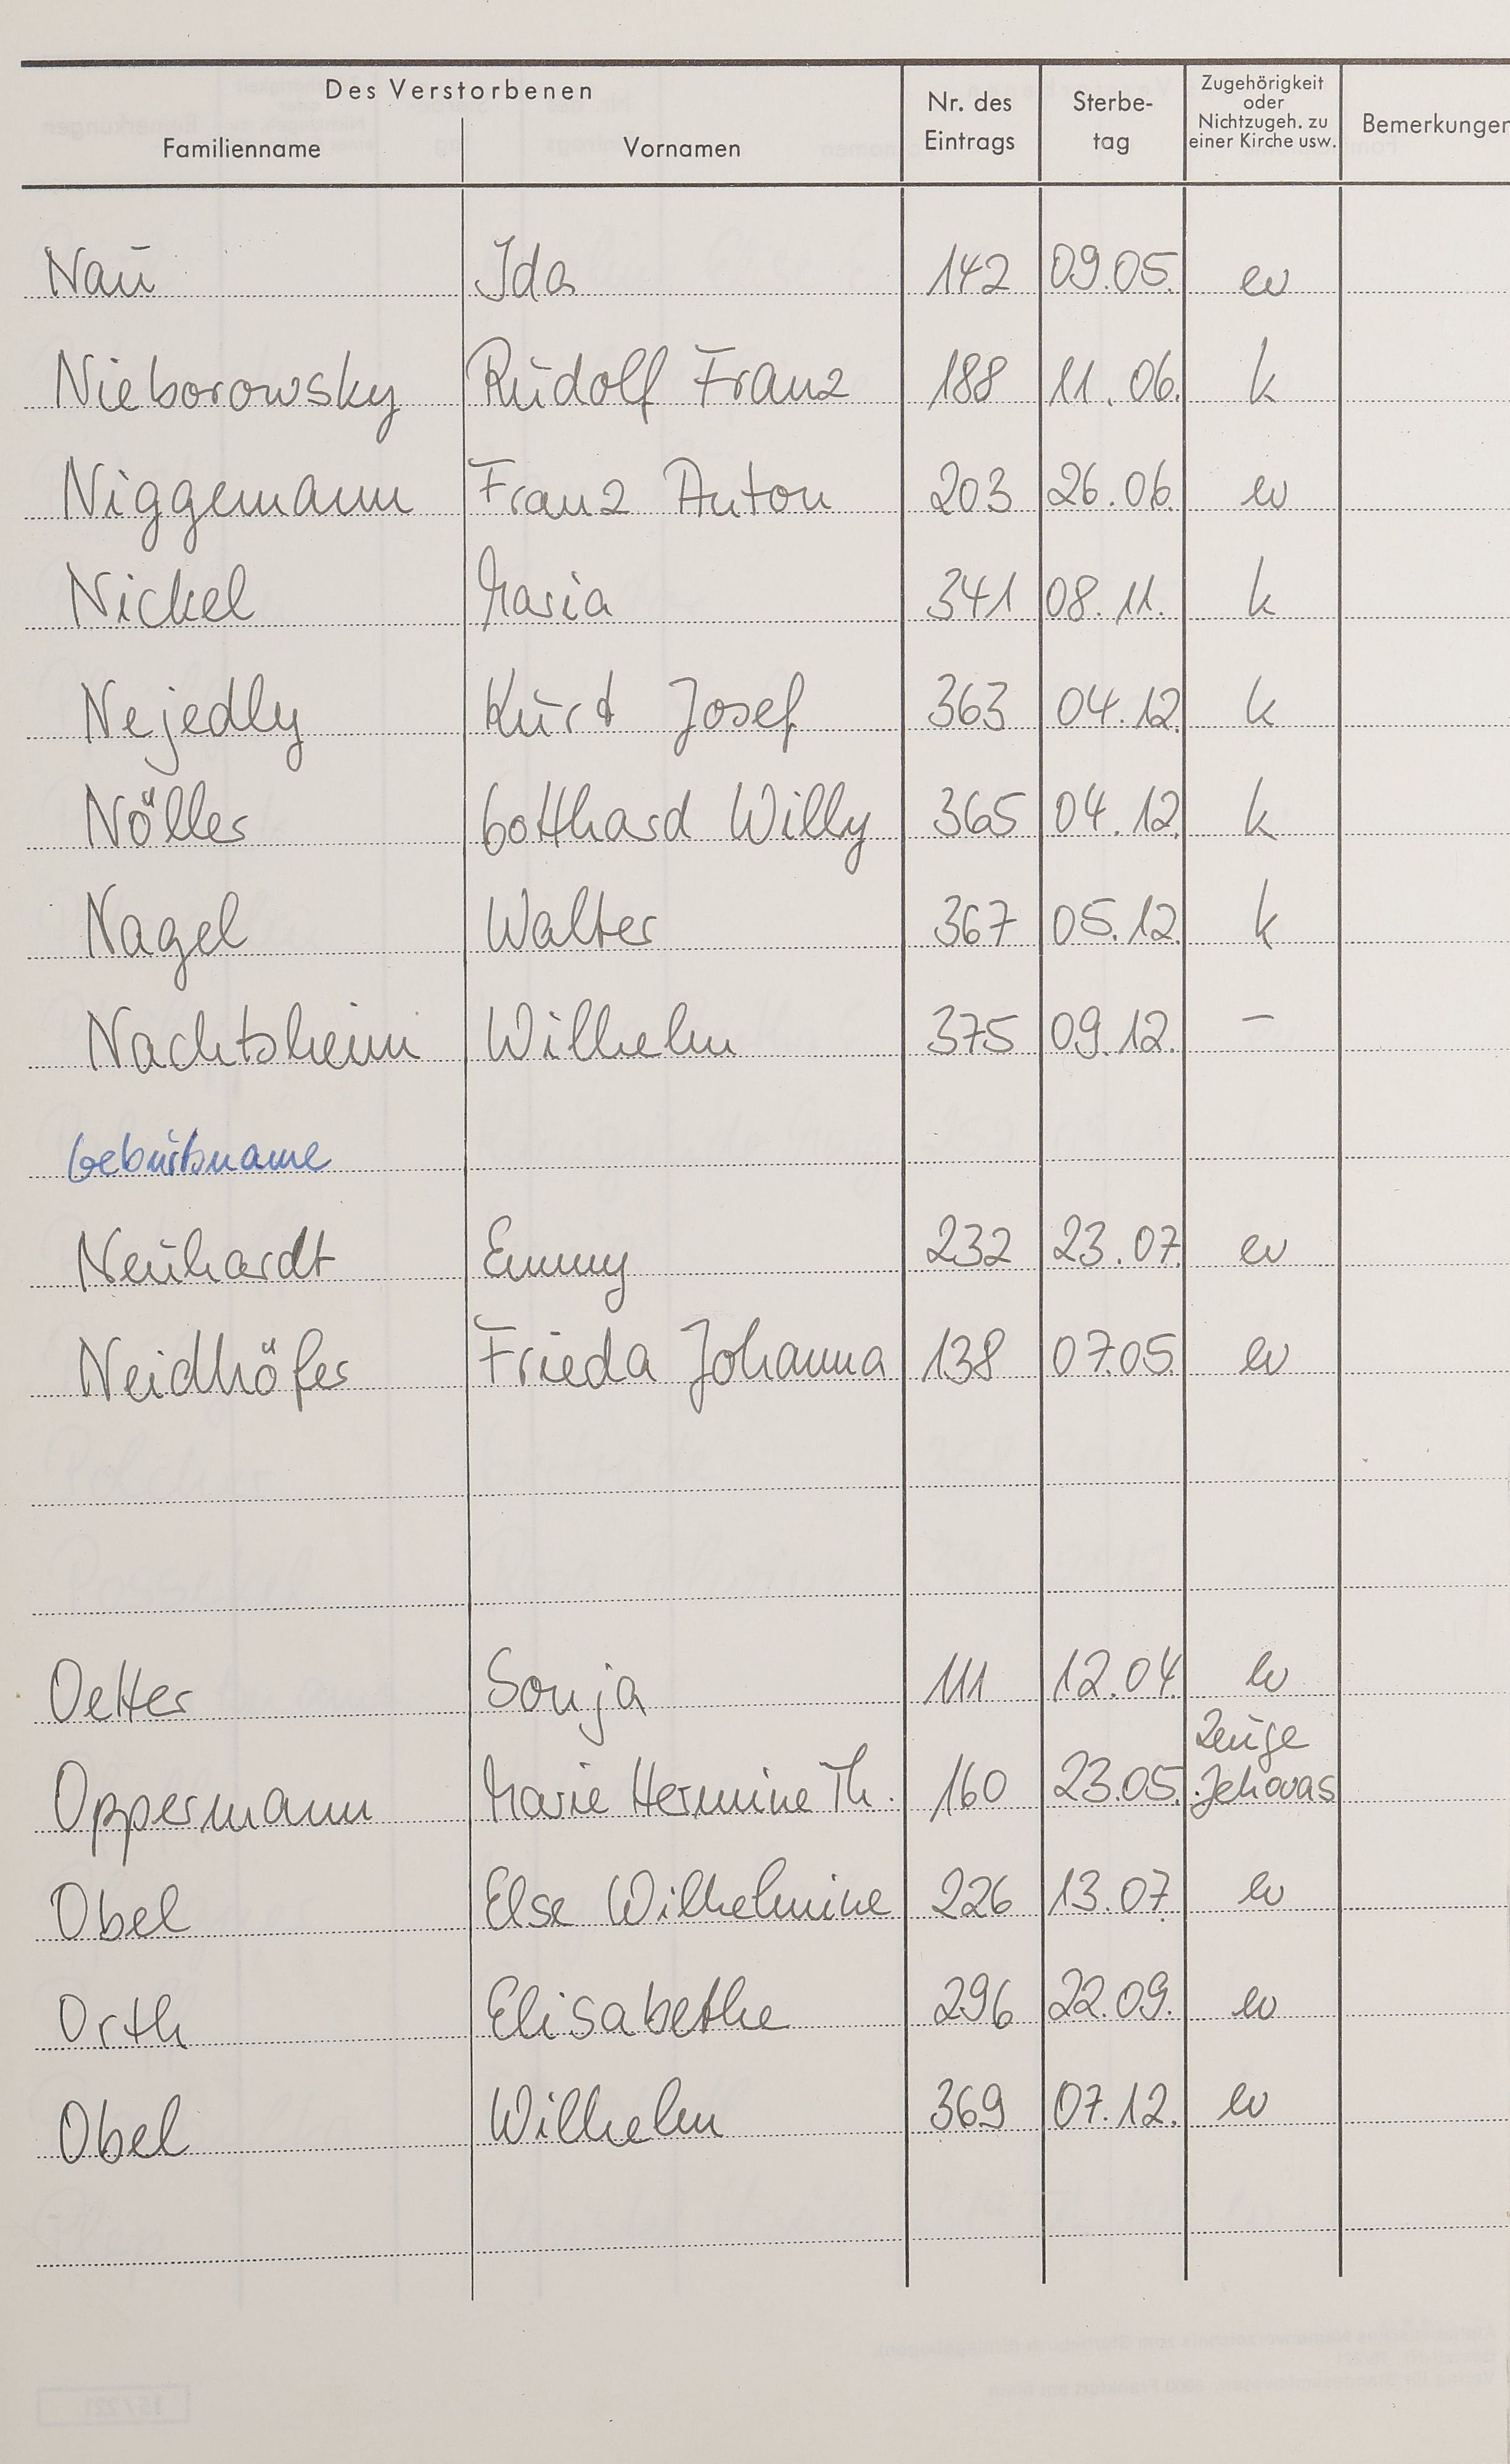 Des Verstorbenen
Familienname Vornamen Nr. des Eintrags Sterbe-tag Zugehörigkeit oder Nichtzugeh. zu einer Kirche usw. Bemerkungen
Nau Ida 142 09.05. ev
Nieborowsky Rudolf Franz 188 11.06. k
Niggemann Franz Anton 203 26.06. ev
Nickel Maria 341 08.11. k
Nejedly Kurt Josef 363 04.12. k
Nöller Gotthard Willy 365 04.12. k
Nagel Walter 367 05.12. k
Nachtsheim Wilhelm 375 09.12. –
Geburtsname
Neuhardt Emmy 232 23.07. ev
Neidhöfer Frieda Johanna 138 07.05. ev
Oetter Sonja 111 12.04. ev
Oppermann Marie Hermine Th. 160 23.05. Zeuge Jehovas
Obel Else Wilhelmine 226 13.07. ev
Orth Elisabethe 296 22.09. ev
Obel Wilhelm 369 07.12. ev